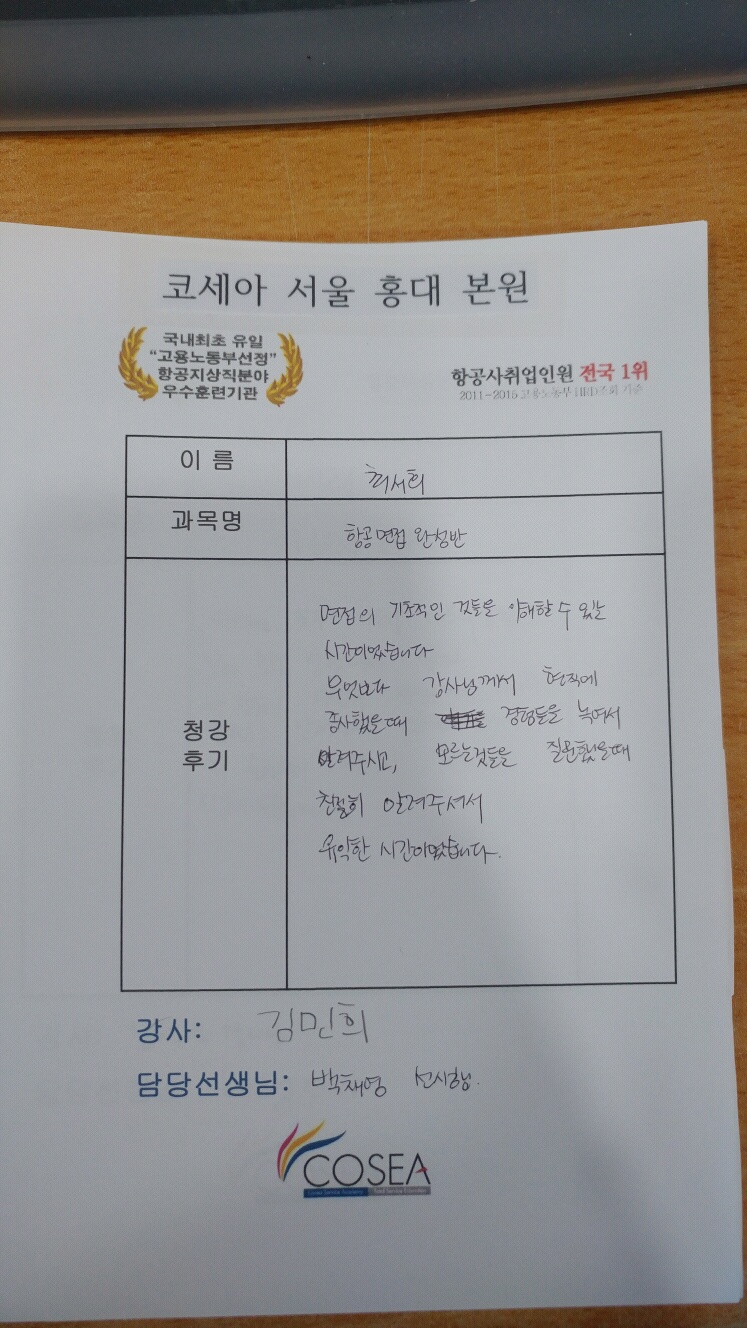 코세아 서울 홍대 본원
국내최초 유일
"고용노동부선정"
항공지상직분야
우수훈련기관
항공사취업인원 전국 1위
2011-2015 고용노동부 HRD조회 기준
이 름
최서희
과목명
항공면접 완성반
청강
후기
면접의 기초적인 것들을 이해할 수 있는
시간이었습니다
무엇보다 강사님께서 현직에
종사했을때 경험들을 녹여서
알려주시고, 모르는것들을 질문했을때
친절히 알려주셔서
유익한 시간이였습니다.
강사: 김민희
담당선생님: 박채영
COSEA